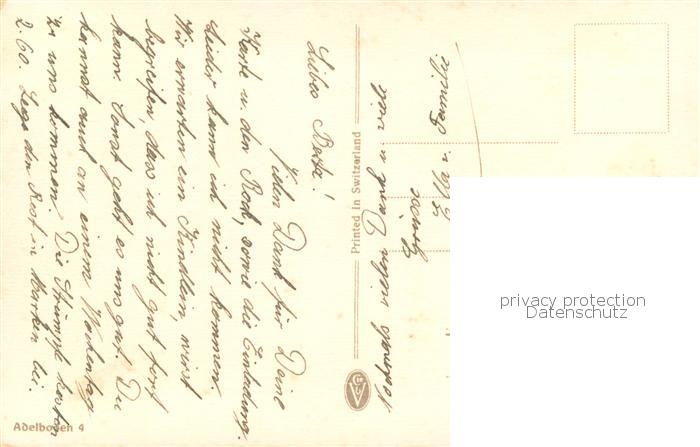 Liebes Berta!
Vielen Dank für Deine
Karte u. den Rock, sowie die Einladung.
Leider kann ich nicht kommen
Wir erwarten ein Kindlein, wirst
begreifen dass ich nicht gut fort
kann. Sonst geht es uns gut. Du
kannst auch an einem Wochentag
zu uns kommen. Die Strümpfe kosten
2.60. Lege den Rest in Marken bei.
Nochmals vielen Dank u. viele
Grüsse
u. Familie
Printed in Switzerland
Adelboden 4
privacy protection
Datenschutz